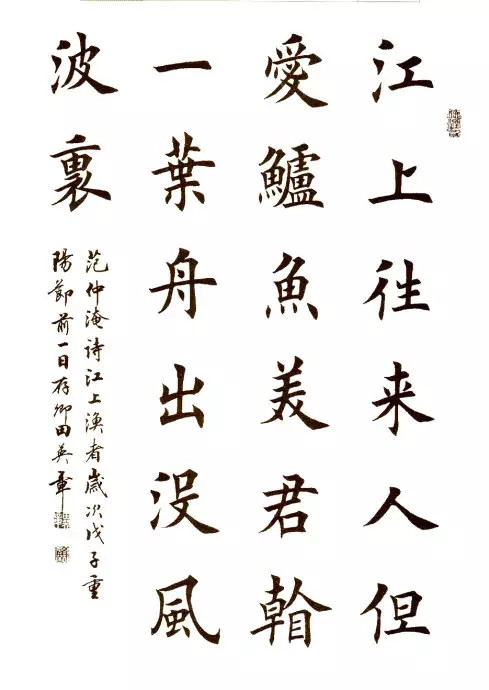 江上往来人但
愛鱸魚美君看
一葉舟出没風
波裏
范仲淹詩江上漁者歲次戊子重
陽節前一日存卿田英章